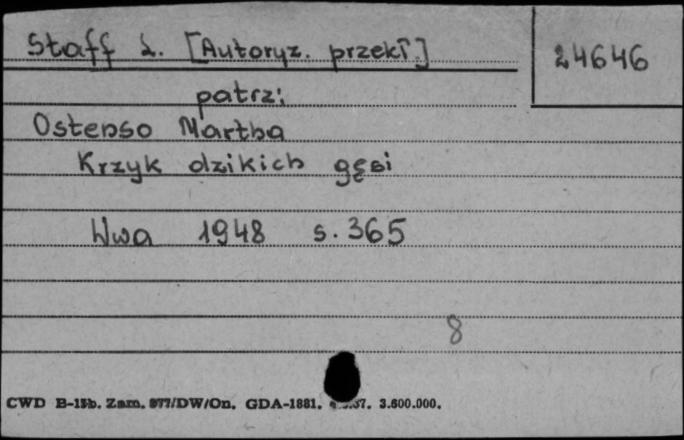 Staff L. [Autoryz. przekł.]
24646
patrz:
Ostenso Martha
Krzyk dzikich gęsi
Wwa 1948 s. 365
8
CWD B-15b. Zam. 977/DW/On. GDA-1881. 37. 3.600.000.